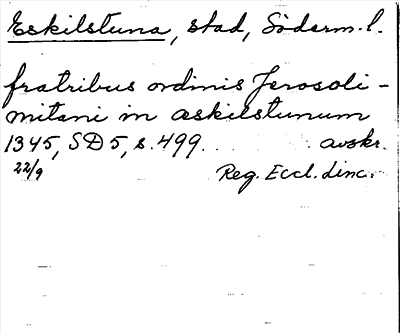 Eskilstuna, stad, Söderm. l.
fratribus ordinis Jerosoli-
mitani in æskilstunum
1345, SD 5, s. 499. . . avskr.
22/9 Reg. Eccl. Linc.